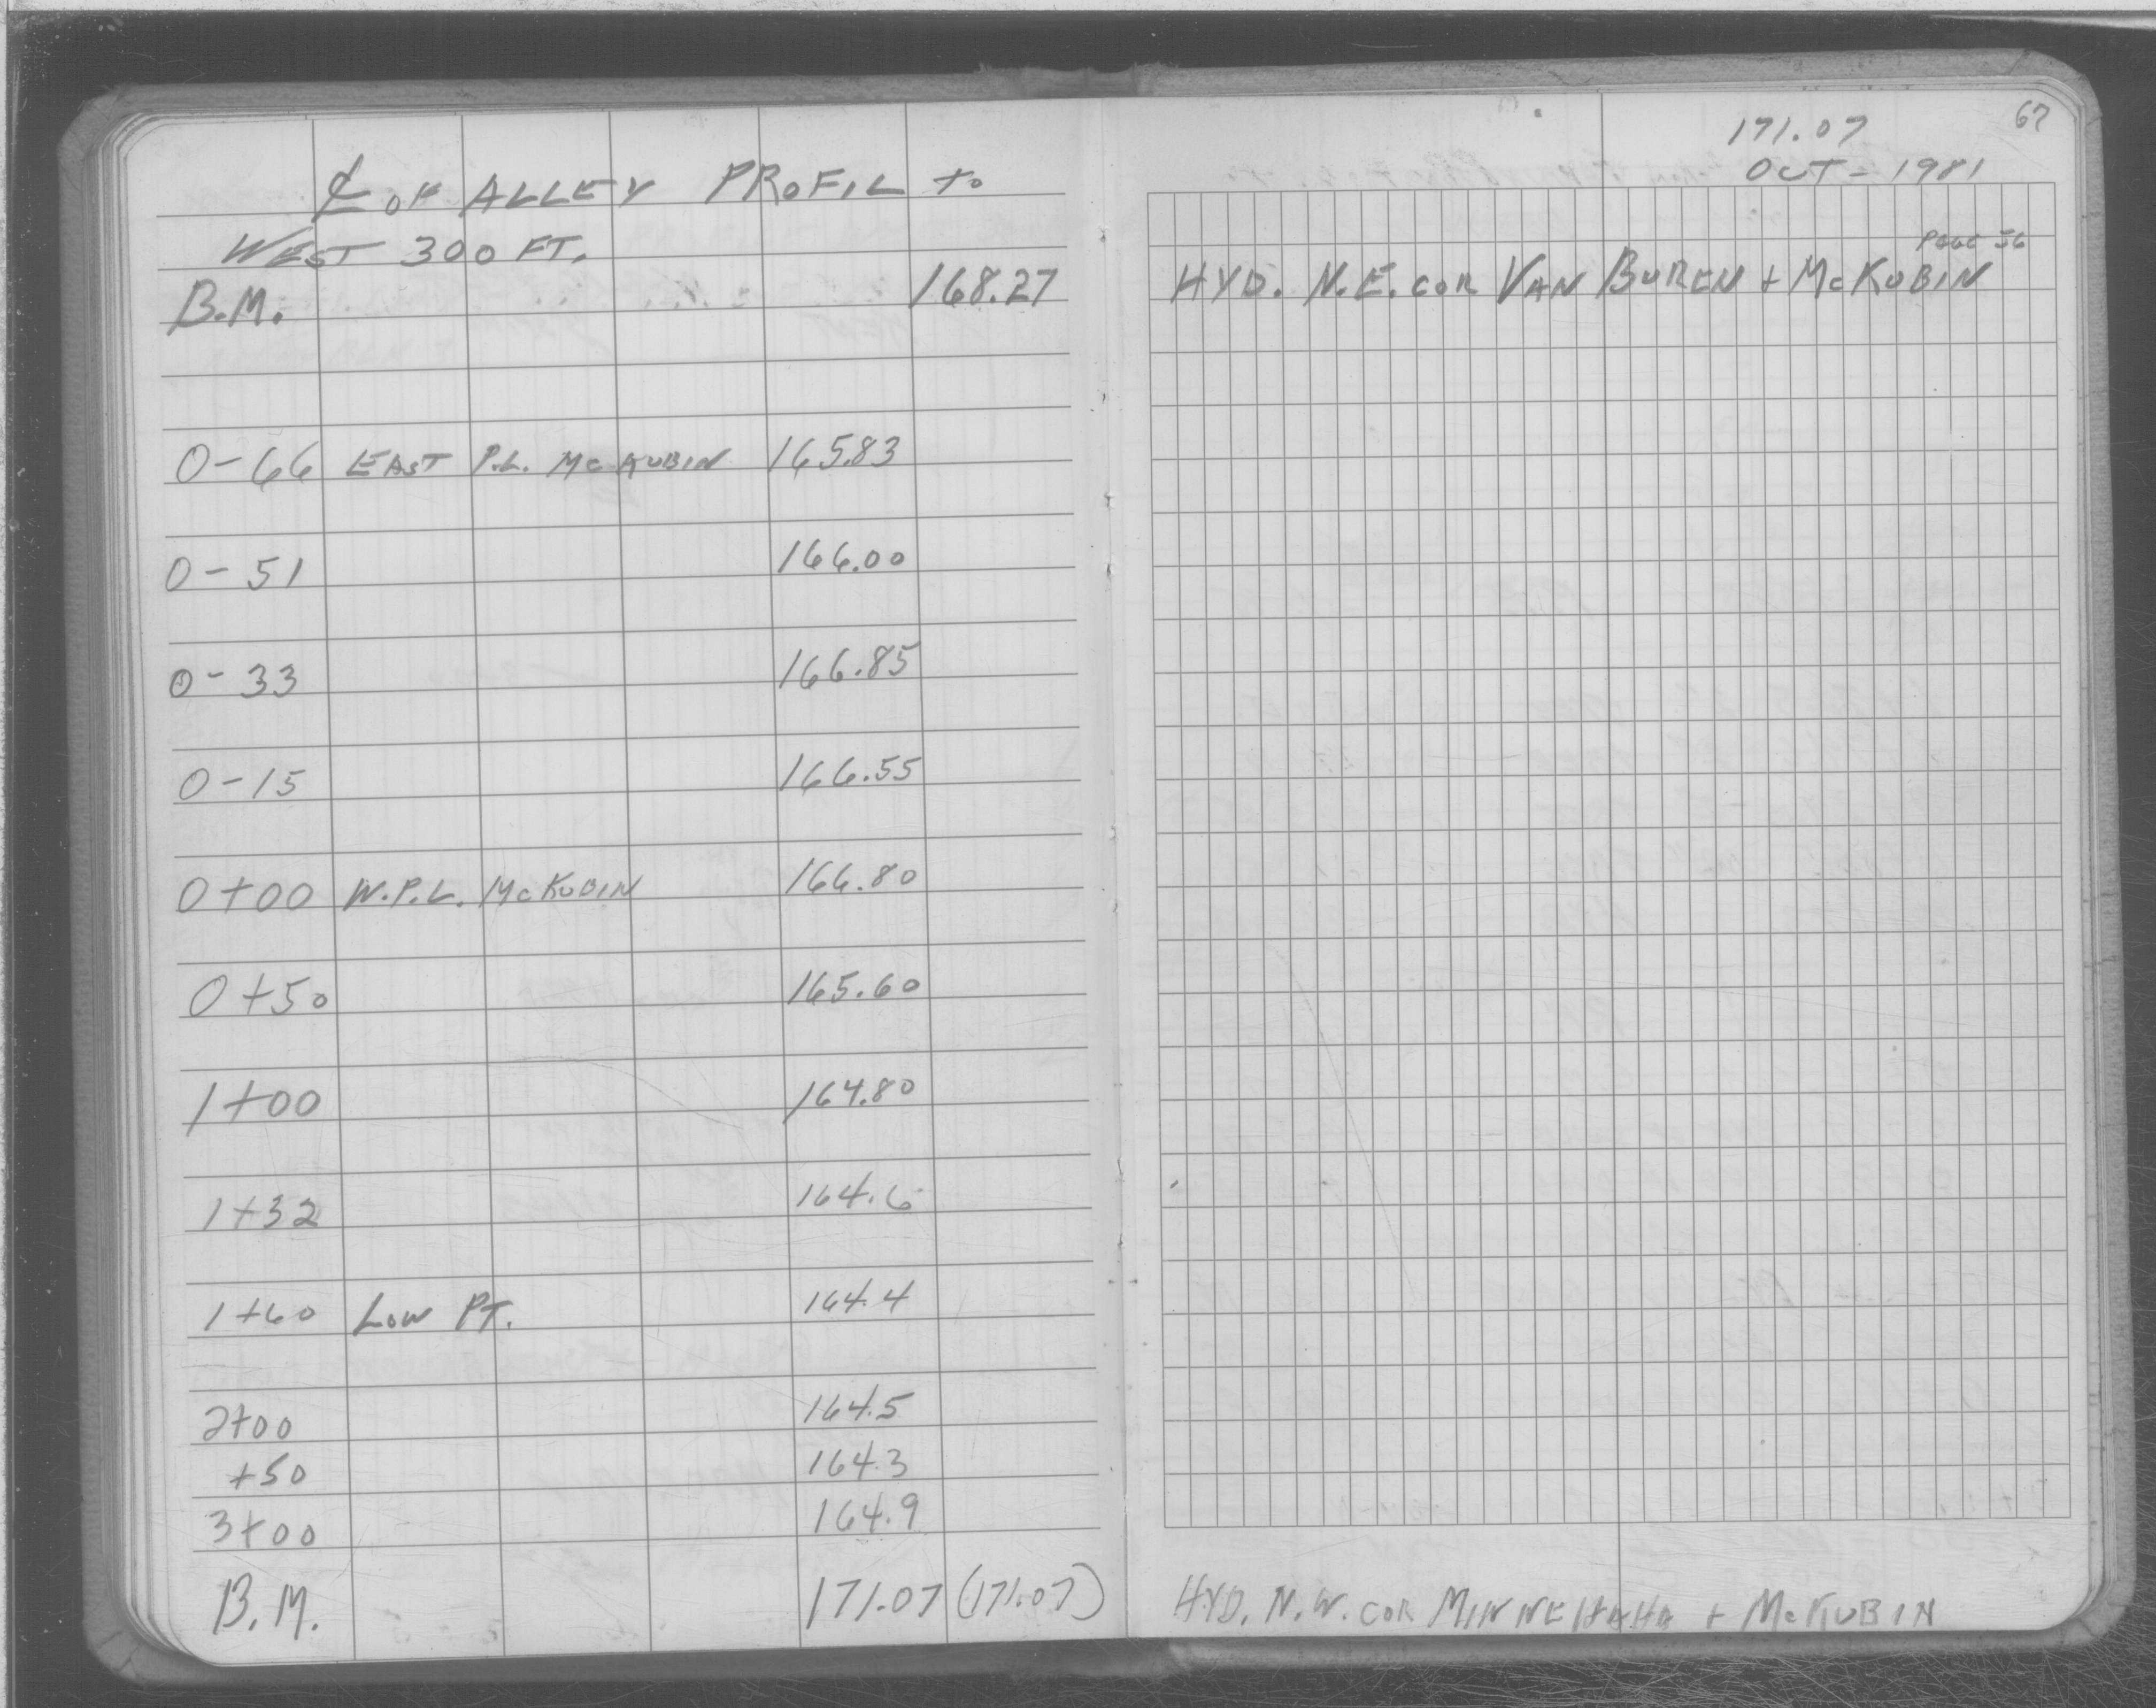 ℄ OF ALLEY PROFIL to
WEST 300 FT.
B.M. 168.27
0-66 EAST P.L. McKUBIN 165.83
0-51 166.00
0-33 166.85
0-15 166.55
0+00 W.P.L. McKUBIN 166.80
0+50 165.60
1+00 164.80
1+32 164.6
1+60 LOW PT. 164.4
2+00 164.5
+50 164.3
3+00 164.9
B.M. 171.07 (171.07)
67
171.07
OCT - 1981
PAGE 56
HYD. N.E. COR VAN BUREN + McKUBIN
HYD. N.W. COR MINNEHAHA + McKUBIN